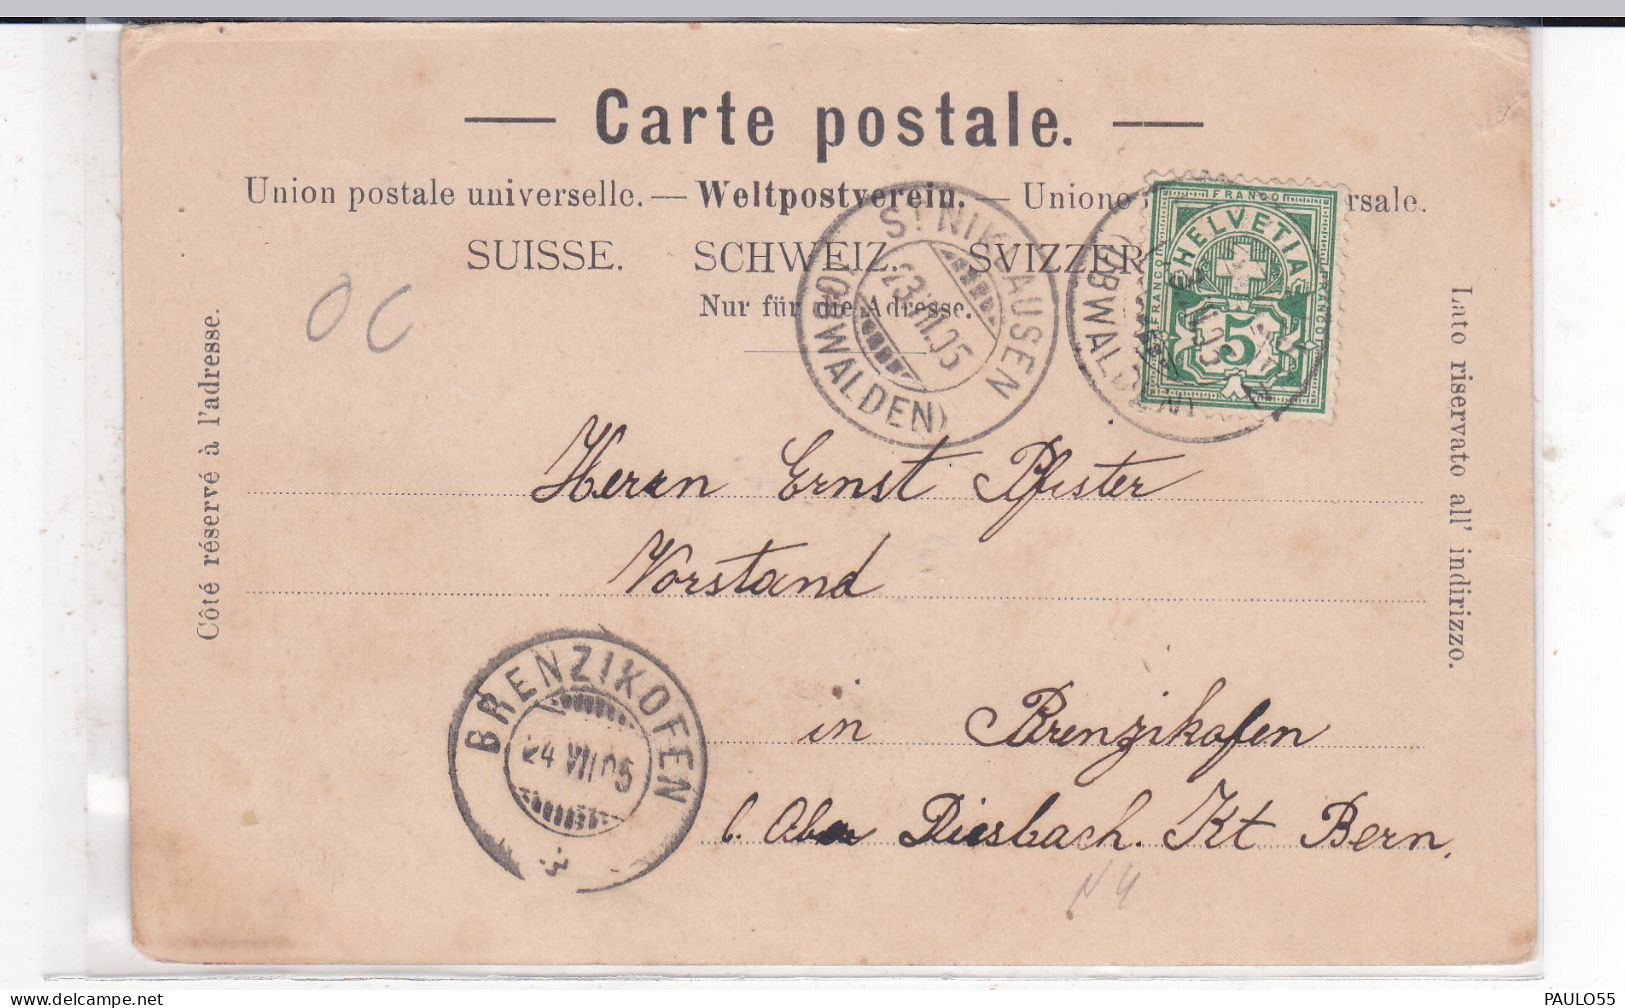 — Carte postale. —
Union postale universelle. — Weltpostverein. — Unione rsale.
SUISSE. SCHWEIZ. SVIZZER
Nur für die Adresse.
Côté réservé à l'adresse.
Lato riservato all' indirizzo.
FRANCO
FRANCO
FRANCO
HELVETIA
5
ST NIKLAUSEN
23.VII.05
(OBWALDEN)
(OBWALDEN)
OC
Herrn Ernst Pfister
Vorstand
in Brenzikofen
b. Ober Diesbach. Kt Bern.
BRENZIKOFEN
24 VII 05
delcampe.net
PAULO55